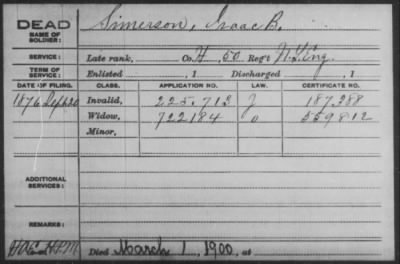 DEAD Simerson, Isaac B.
NAME OF SOLDIER:
SERVICE: Late rank, Co. H, 50 Reg't N.Y. Eng.
TERM OF SERVICE: Enlisted , 1 Discharged , 1
DATE OF FILING. CLASS. APPLICATION NO. LAW. CERTIFICATE NO.
1876 Sep 20 Invalid, 225.713 J 187.288
Widow, 722184 559812
Minor,
ADDITIONAL SERVICES:
REMARKS:
Died March 1, 1900, at